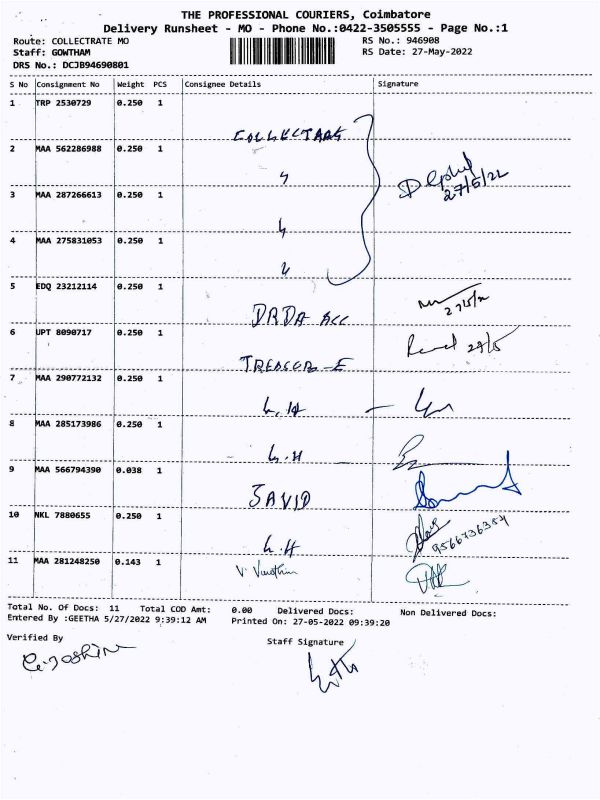 THE PROFESSIONAL COURIERS, Coimbatore
Delivery Runsheet - MO - Phone No.:0422-3505555 - Page No.:1
Route: COLLECTRATE MO RS No.: 946908
Staff: GOWTHAM RS Date: 27-May-2022
DRS No.: DCJB94690801
S No Consignment No Weight PCS Consignee Details Signature
1 TRP 2530729 0.250 1
2 MAA 562286988 0.250 1
27/5/22
3 MAA 287266613 0.250 1
4 MAA 275831053 0.250 1
5 EDQ 23212114 0.250 1 DRDA ACC
6 UPT 8090717 0.250 1
7 MAA 290772132 0.250 1
8 MAA 285173986 0.250 1
9 MAA 566794390 0.038 1 JAVID
10 NKL 7880655 0.250 1
9566736354
11 MAA 281248250 0.143 1
Total No. Of Docs: 11 Total COD Amt: 0.00 Delivered Docs: Non Delivered Docs:
Entered By :GEETHA 5/27/2022 9:39:12 AM Printed On: 27-05-2022 09:39:20
Verified By Staff Signature